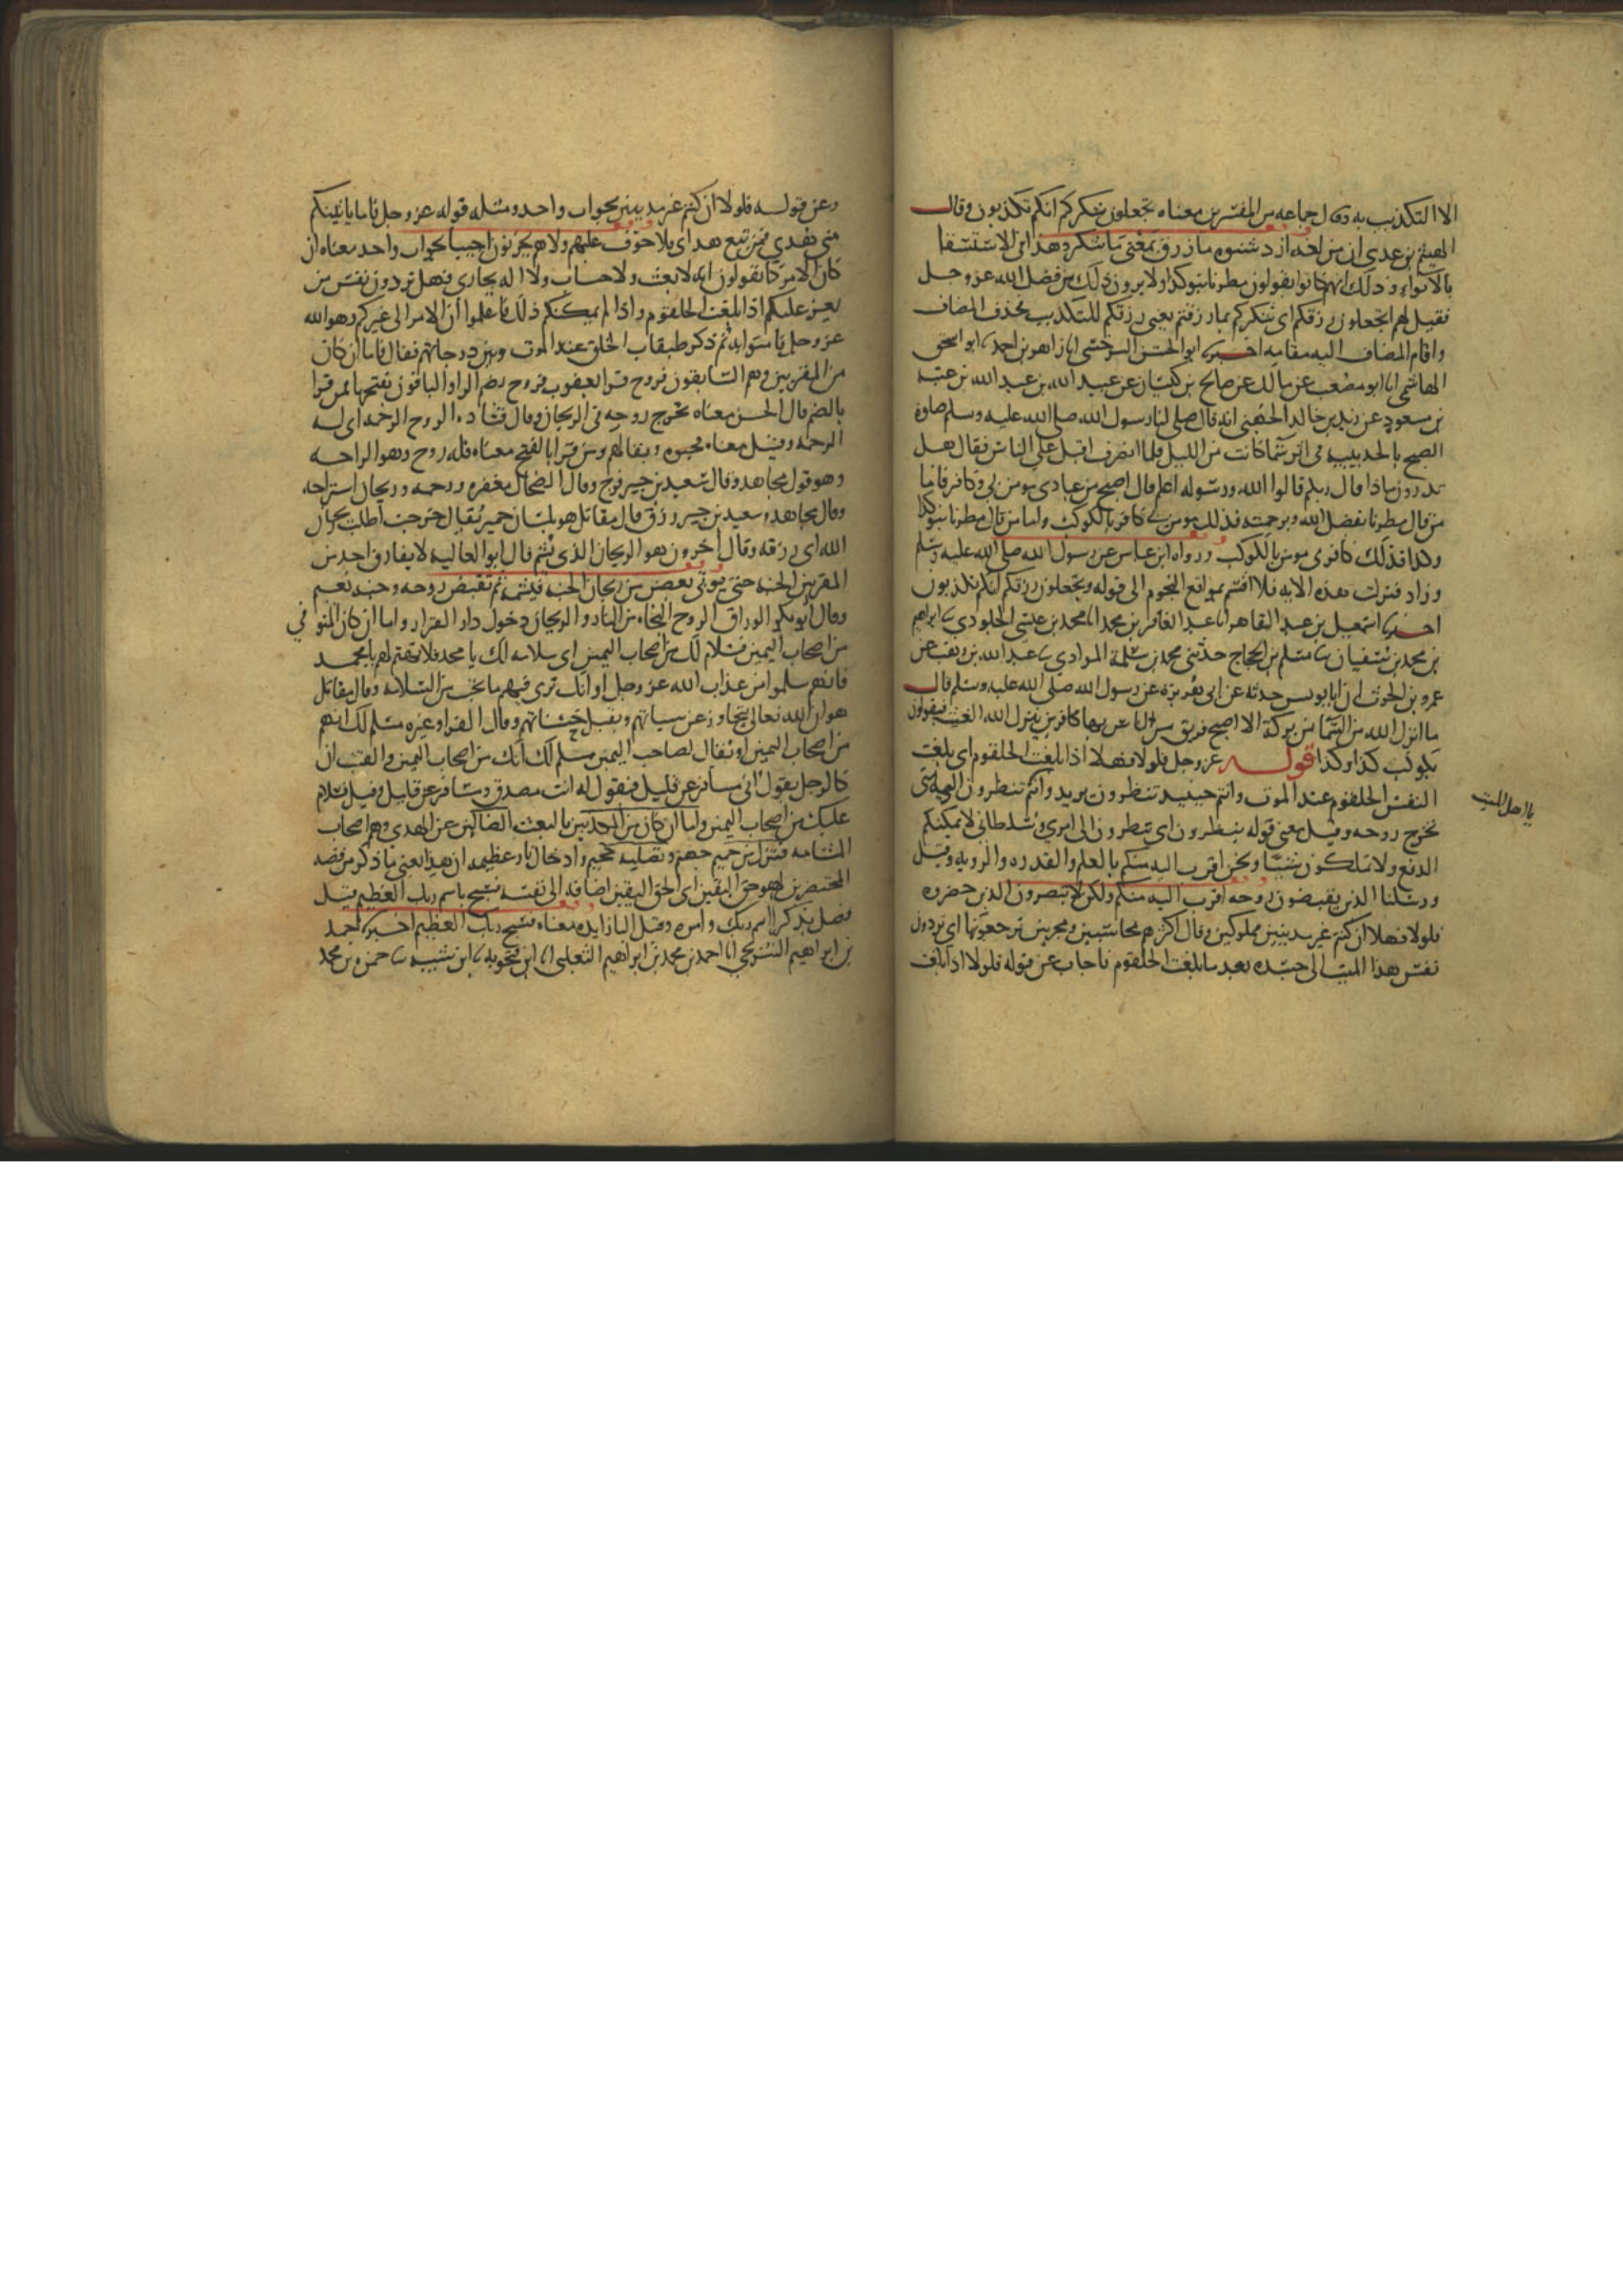 الا التكذيب به وقال جماعه من المفسرين معناه تجعلون شكركم انكم تكذبون وقال
الهيثم بن عدي ان من لغه ازد شنوه ما رزق بمعنى ما شكر وهذا في الاستسقا
بالانواء وذلك انهم كانوا يقولون مطرنا بنوكذا ولا يرون ذلك من فضل الله عز وجل
فقيل لهم اتجعلون رزقكم اي شكركم بما رزقتم يعني رزقكم للتكذيب بحذف المضاف
واقام المضاف اليه مقامه اخبرنا ابو الحسن السرخسي انا زاهر بن احمد انا ابو اسحق
الهاشمي انا ابو مصعب عن مالك عن صالح بن كيسان عن عبيد الله بن عبد الله بن عتبه
بن مسعود عن زيد بن خالد الجهني انه قال صلى لنا رسول الله صلى الله عليه وسلم صلوة
الصبح بالحديبيه في اثر سما كانت من الليل فلما انصرف اقبل على الناس فقال هل
تدرون ماذا قال ربكم قالوا الله ورسوله اعلم قال اصبح من عبادي مومن بي وكافر فاما
من قال مطرنا بفضل الله وبرحمته فذلك مومن بي كافر بالكوكب واما من قال مطرنا بنوكذا
وكذا فذلك كافر بي مومن بالكوكب ورواه ابن عباس عن رسول الله صلى الله عليه وسلم
وزاد فنزلت هذه الايه فلا اقسم بمواقع النجوم الى قوله وتجعلون رزقكم انكم تكذبون
اخبرنا اسمعيل بن عبد القاهر انا عبد الغافر بن محمد انا محمد بن عيسى الجلودي نا ابراهيم
بن محمد بن سفيان نا مسلم بن الحجاج حدثني محمد بن سلمة المرادي نا عبد الله بن وهب عن
عمرو بن الحرث ان ابا يونس حدثه عن ابي هريرة عن رسول الله صلى الله عليه وسلم قال
ما انزل الله من السما من بركة الا اصبح فريق من الناس بها كافرين ينزل الله الغيث فيقولون
بكوكب كذا وكذا قوله عز وجل فلولا فهلا اذا بلغت الحلقوم اي بلغت
النفس الحلقوم عند الموت وانتم حينيد تنظرون يريد وانتم تنظرون اليه متى
يا اهل الميت
تخرج روحه وقيل معنى قوله ينظرون اي تنظرون الى امري وسلطاني لا يمكنكم
الدفع ولا تملكون شيا ونحن اقرب اليه منكم بالعلم والقدره والرويه وقيل
ورسلنا الذين يقبضون روحه اقرب اليه منكم ولكن لا تبصرون الذين حضروه
فلولا فهلا ان كنتم غير مدينين مملوكين وقال اكثرهم محاسبين ومجزيين ترجعونها اي تردون
نفس هذا الميت الى جسده بعد ما بلغت الحلقوم فاجاب عن قوله فلولا اذا بلغت
وعن قوله فلولا ان كنتم غير مدينين بجواب واحد ومثله قوله عز وجل فاما ياتينكم
مني هدي فمن تبع هداي فلا خوف عليهم ولا هم يحزنون اجيبا بجواب واحد معناه ان
كان الامر كما تقولون انه لا بعث ولا حساب ولا اله يجازي فهل تردون نفس من
يعز عليكم اذا بلغت الحلقوم واذا لم يمكنكم ذلك فاعلموا ان الامر الى غيركم وهو الله
عز وجل فامنوا به ثم ذكر طبقات الخلق عند الموت وبين درجاتهم فقال فاما ان كان
من المقربين وهم السابقون فروح قرا يعقوب فروح بضم الرا والباقون بفتحها فمن قرا
بالضم قال الحسن معناه تخرج روحه في الريحان وقال قتاده الروح الرحمه اي له
الرحمه وقيل معناه فحيوه وبقا لهم ومن قرا بالفتح معناه فله روح وهو الراحه
وهو قول مجاهد وقال سعيد بن جبير فرح وقال الضحاك مغفره ورحمه وريحان استراحه
وقال مجاهد وسعيد بن جبير رزق قال مقاتل هو بلسان حمير يقال خرجت اطلب ريحان
الله اي رزقه وقال اخرون هو الريحان الذي يشم قال ابو العاليه لا يفارق احد من
المقربين الجنه حتى يوتى بغصن من ريحان الجنه فيشمه ثم تقبض روحه وجنه نعيم
وقال ابو بكر الوراق الروح النجاه من النار والريحان دخول دار القرار واما ان كان المتوفي
من اصحاب اليمين فسلام لك من اصحاب اليمين اي سلامه لك يا محمد فلا تهتم لهم يا محمد
فانهم سلموا من عذاب الله عز وجل او انك ترى فيهم ما تحب من السلامه وقال مقاتل
هو ان الله تعالى يتجاوز عن سياتهم ويقبل حسناتهم وقال الفرا وغيره مسلم لك انهم
من اصحاب اليمين او يقال لصاحب اليمين مسلم لك انك من اصحاب اليمين والقيت ان
كالرجل يقول اني مسافر عن قليل فيقول له انت مصدق ومسافر عن قليل وقيل فسلام
عليك من اصحاب اليمين واما ان كان من المكذبين بالبعث الضالين عن الهدي وهم اصحاب
المشامه فنزل من حميم جهنم وتصليه جحيم وادخال نار عظيمه ان هذا يعني ما ذكر من قصه
المحتضرين لهو حق اليقين اي الحق اليقين اضافه الى نفسه فسبح باسم ربك العظيم قيل
فصل بذكر اسم ربك وامره وقيل البا زايده معناه فسبح ربك العظيم اخبرنا احمد
بن ابراهيم الشريحي انا احمد بن محمد بن ابراهيم الثعلبي انا ابن فنجويه نا ابن شيبه نا حمزه بن محمد